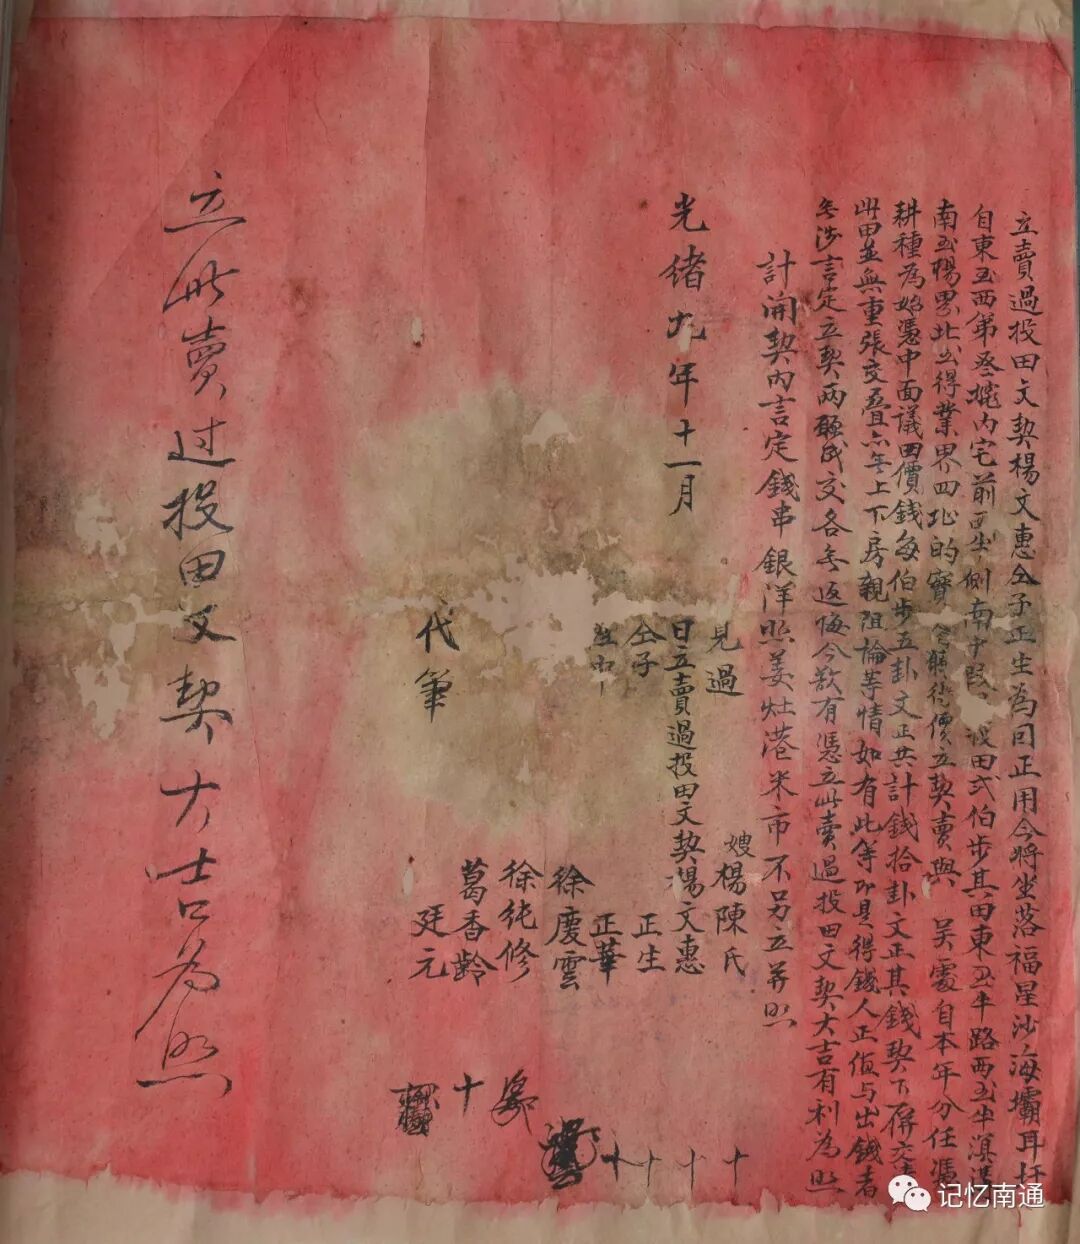 立賣過投田文契楊文惠仝子正生為因正用今將坐落福星沙海壩耳圩
自東至西第叁埦內宅前側南中段田弍伯步其田東至半路西至半溟溝
南至楊界北至得業界四址的實立契賣與 吳處自本年分任憑
耕種為始憑中面議田價錢每伯步五卦文正共計錢拾卦文正其錢契下倂交清
此田並無重張交疊亦無上下房親阻論等情如有此等即是得錢人正值与出錢者
無涉言定立契兩願成交各無返悔今欲有憑立此賣過投田文契大吉有利為照
計開契內言定錢串銀洋照姜灶港米市不另立并照
見過 嫂楊陳氏 十
光緒九年十一月 日立賣過投田文契楊文惠 十
仝子 正生 十
中 正華 十
徐慶雲
徐純修
葛香齡 十
代筆 廷元
立此賣过投田文契大吉为照
记忆南通